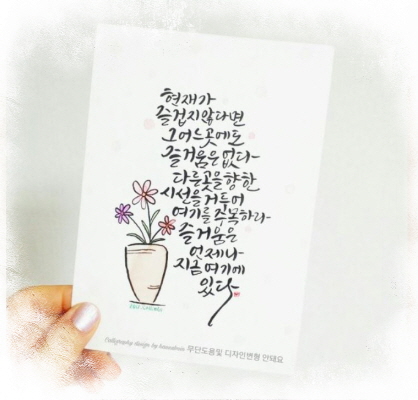 현재가
즐겁지않다면
그어느곳에도
즐거움은없다
다른곳을향한
시선을거두어
여기를주목하라
즐거움은
언제나
지금여기에
있다
Calligraphy design by
무단도용및 디자인변형 안돼요